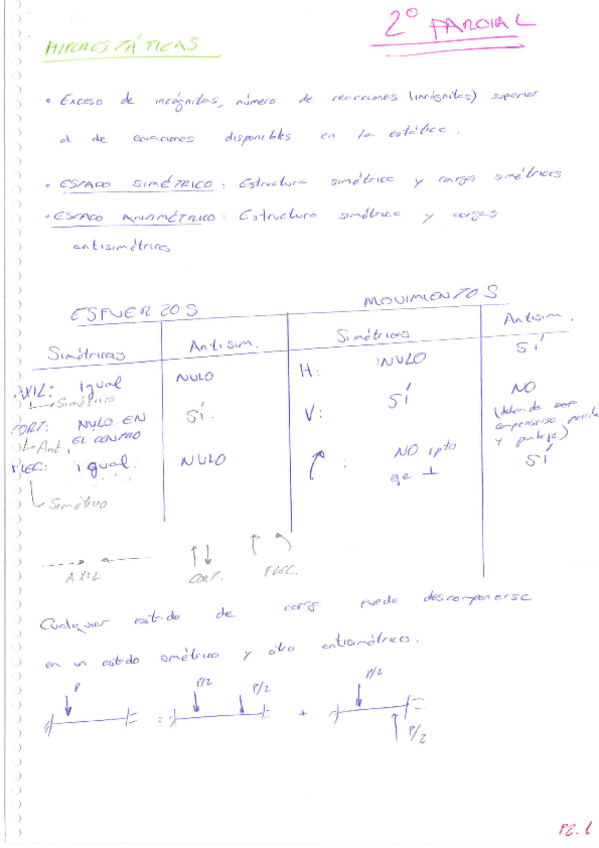 2º PARCIAL
HIPERESTÁTICAS
• Exceso de incógnitas, número de reacciones (incógnitas) superior
al de ecuaciones disponibles en la estática.
• ESTADO SIMÉTRICO: Estructura simétrica y cargas simétricas
• ESTADO ANTIMÉTRICO: Estructura simétrica y cargas
antisimétricas
ESFUERZOS MOVIMIENTOS
Simétricas Antisim. Simétricas Antisim.
AXIL: igual NULO H: NULO SÍ
Simétrico
CORT: NULO EN EL CENTRO SÍ. V: SÍ NO
Ant.
(deben de
compensarse
y
FLEC: igual NULO : NO rpto eje ⊥ SÍ
Simétrico
AXIL CORT. FLEC.
Cualquier estado de carga puede descomponerse
en un estado simétrico y otro antisimétrico.
P = P/2 P/2 + P/2 P/2
P2.1